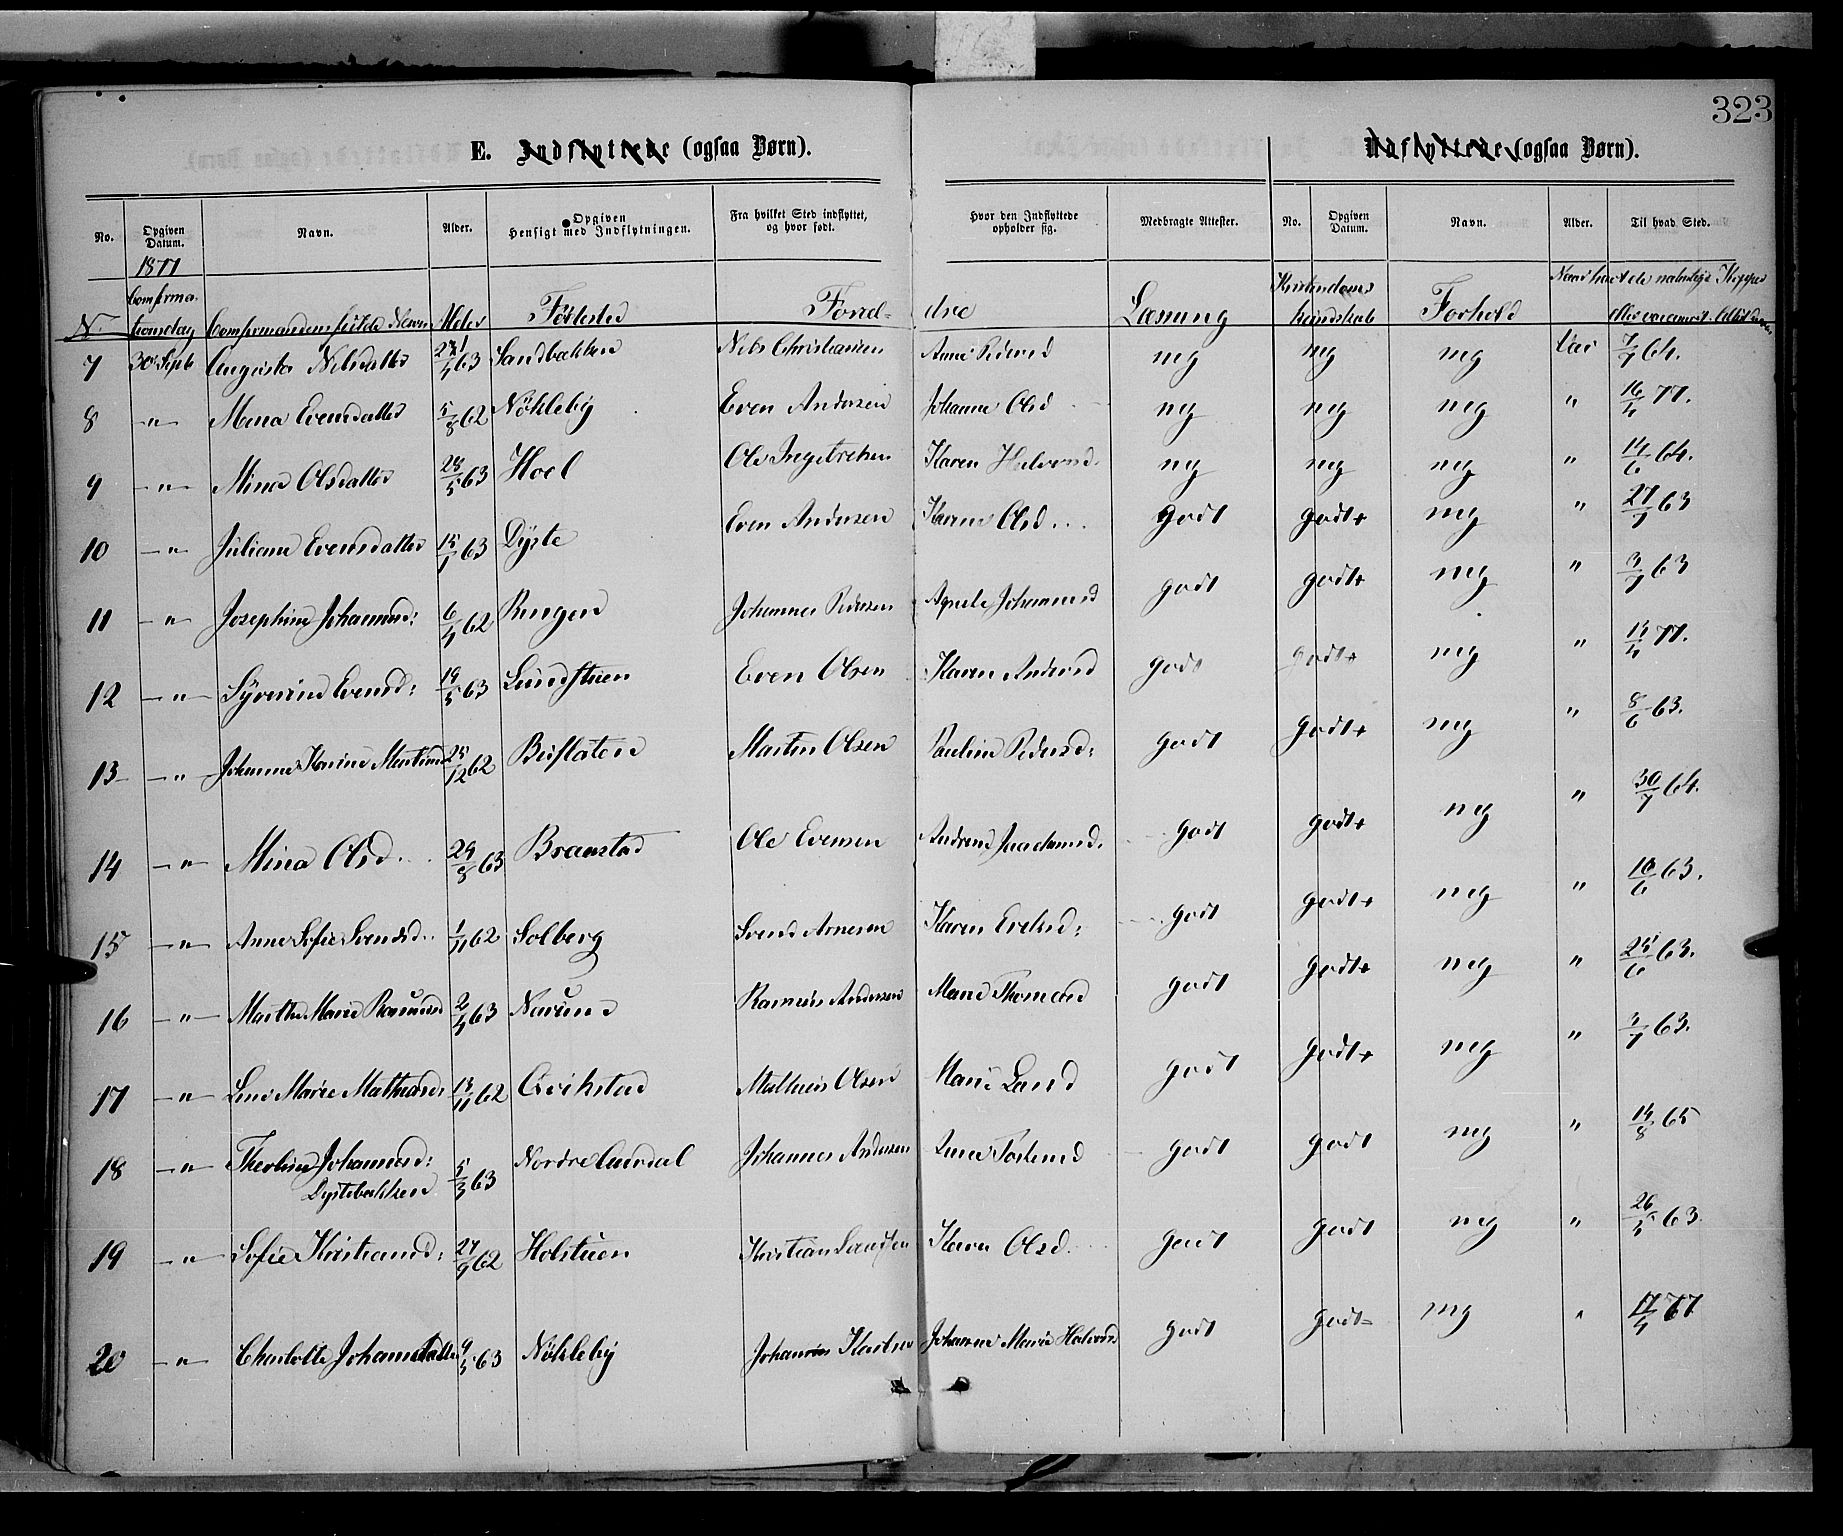 323
E. Indflyttede (ogsaa Børn). Udflyttede (ogsaa Børn).
No. Opgiven Datum. Navn. Alder. Opgiven Hensigt med Indflytningen. Fra hvilket Sted indflyttet, og hvor født. Hvor den Indflyttede opholder sig. Medbragte Attester. No. Opgiven Datum. Navn. Alder. Til hvad Sted.
1877
N. Confirmationsdag Confirmandens fulde Navn Alder Fødested Forældre Læsning Kristendoms kundskab Forhold Naar havt de naturlige Kopper eller vaccineret
7 30 Septb Augusta Nilsdatter 63 Sandbakken Nils Christiansen Anne Pedersd mg mg mg Vac 7/7 64.
8 -"- Mena Evensdatter 5/8 62 Nøkleby Even Andersen Johanne Olsd mg mg mg " 16/4 77.
9 -"- Mina Olsdatter 28/5 63 Hoel Ole Ingebretsen Karen Halvorsd. mg mg mg " 14/6 64.
10 -"- Juliane Evensdatter 15/1 63 Dyste Even Andersen Karen Olsd... godt godt+ mg " 27/7 63
11 -"- Josephine Johannesd: 6/4 62 Ringen Johannes Pedersen Agnete Johannesd godt godt+ mg " 3/7 63
12 -"- Syverine Evensd: 19/5 63 Lundstuen Even Olsen Karen Andersd godt godt+ mg " 14/4 77.
13 -"- Johanne Karine Martinsd 25/12 62 Martin Olsen Pauline Pedersd: godt godt+ mg " 8/6 63.
14 -"- Mina Olsd... 29/5 63 Bramstad Ole Evensen Andrine Joachimsd. godt godt+ mg " 30/7 64.
15 -"- Anne Sofie Svendsd.. 1/11 62 Solberg Svend Arnesen Karen Eriksd: godt godt+ mg " 10/6 63.
16 -"- Marthe Marie Rasmusd 2/4 63 Narum Rasmus Andersen Marie Thomasd godt godt+ mg " 25/6 63.
17 -"- Lina Marie Mathiasd: 13/11 62 Qvikstad Mathias Olsen Marie Larsd godt godt+ mg " 3/7 63.
18 -"- Theoline Johannesd: 5/3 63 Nordre Aurdal Johannes Andersen Lina Torstensd godt godt mg " 14/8 65
Dystebakken
19 -"- Sofie Kristiansd: 27/9 62 Holstuen Kristian Karen Olsd. godt godt mg " 26/5 63.
20 -"- Charlotte Johansdatter 9/5 63 Nøkleby Johannes Karlsen Johanne Marie Halvorsd godt godt= mg " 17/4 77